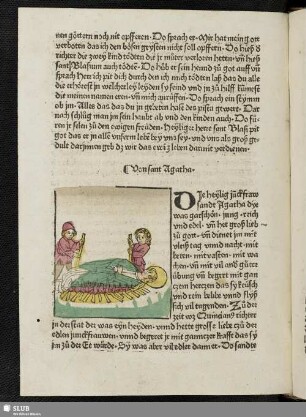 nen göttern noch nit opfferen. Do sprach er. Mir hat mein got
verboten das ich den bösen geysten nicht soll opfferen. Do hieß d
richter die zwey kind tödten die jr müter verloren hetten. vñ hieß
sant Blasium auch tödten. Do hůb er sein hennd zů got auff vñ
sprach Herr ich pit dich durch den ich mich tödten laß das du alle
die erhörest in welcherley leyden sy seind vnd jn zů hilff kūmest
die meinen namen eren. vñ mich anrüffen. Do sprach ein stymm
zů jm. Alles das das du in gebeten hast des pist gewert. Dar
nach schlůg man jm sein haubt ab vnd den kinden auch. Do fů
ren je selen zů den ewigen freüden. Heyliger herre sant Blasi pit
got das er in alle vnsern lebē bey vns sey. vnd vns als groß ge
dult darjnnen geb dz wir das ewig leben damit verdienen.
Von sant Agatha.
Die heylig junckfraw
sandt Agatha dye
was gar schön. jung. reich
vnd edel. vñ het groß lieb
zů gott. vñ dienet jm mit
fleiß tag vnnd nacht. mit
beten. mit vasten. mit wa
chen. vñ mit vil ands gůter
übung vñ begeret mit gan
czem herczen das sy keüsch
vnd rein belibe vnnd flyß
sich vil tugenden. Zů der
zeit wz Quincianus richter
in der stat der was eyn heyden. vnnd hette grosse liebe czů der
edlen junckfrauwen. vnnd begeret jr mit ganczer krafft das sy
jm zů der Ee würde. Sy was aber vil edler dann er. Do sandte
SLUB